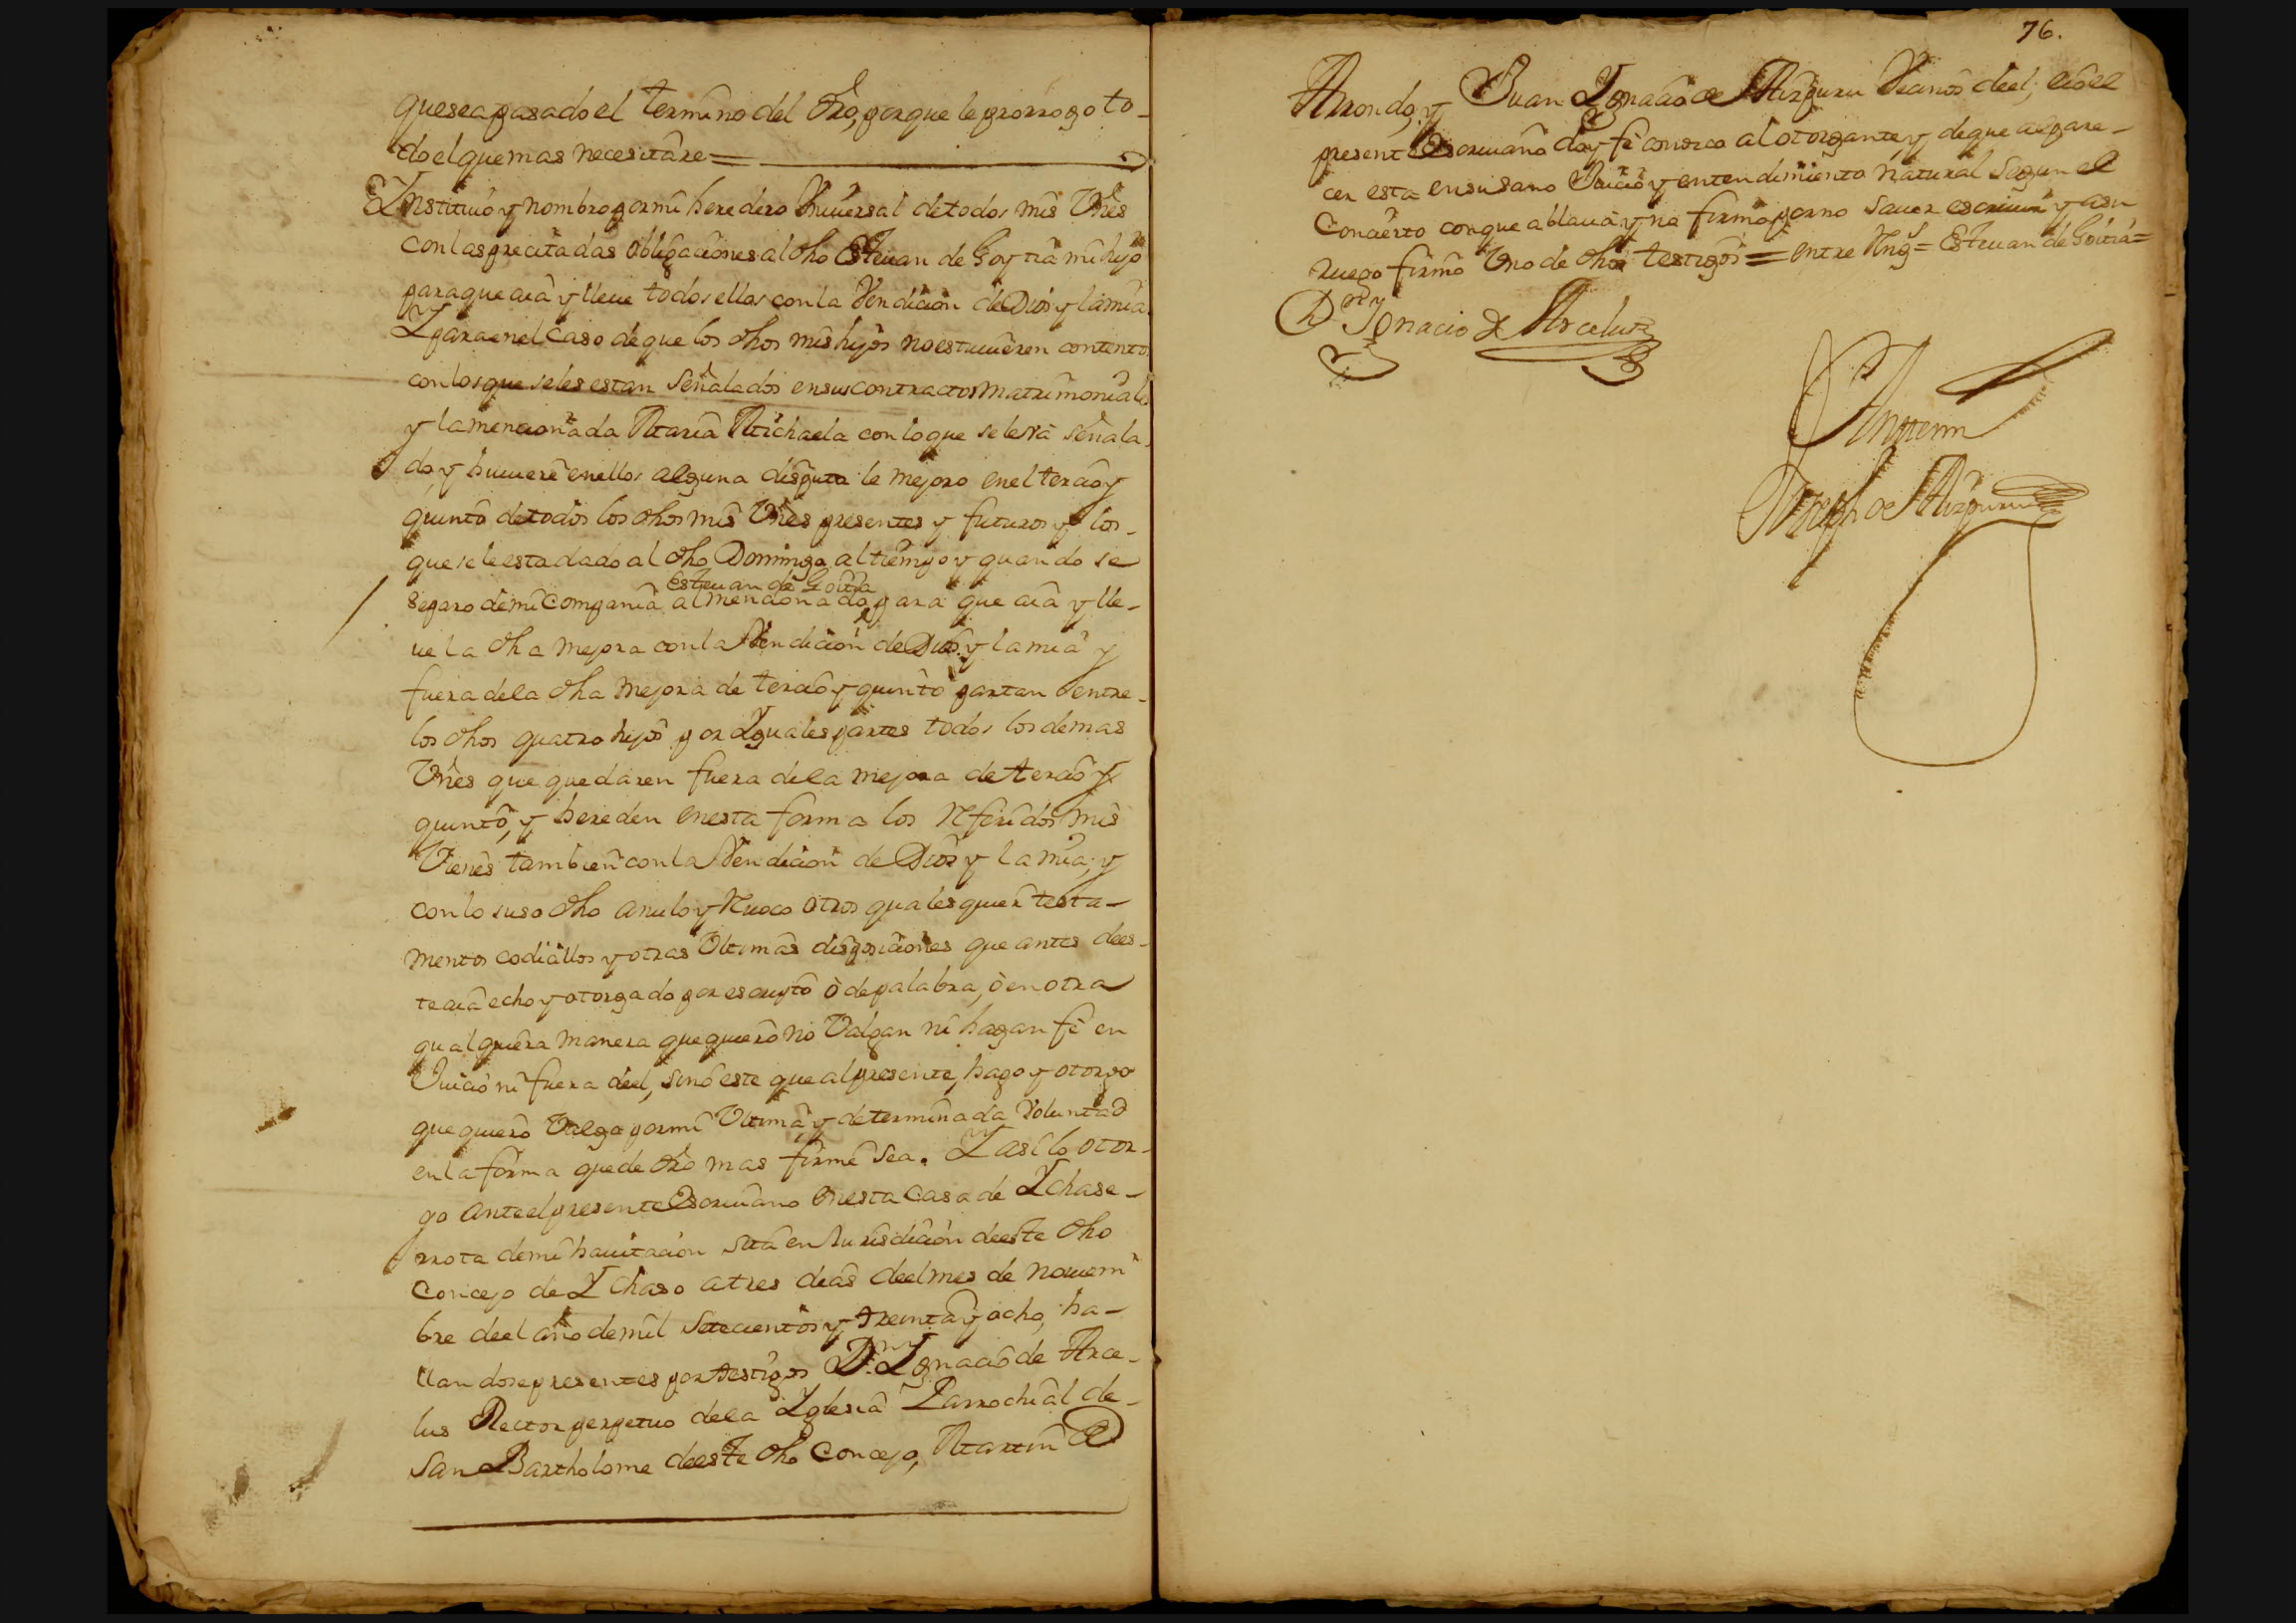 que sea pasado el termino del dro, porque le prorrogo to-
do el que mas necesitare =
Instituio y nombro por mi heredero Vniuersal de todos mis Vnes
con las precitadas obligaciones al dho Esteuan de Goytia mi hijo
para que aia y lleue todos ellos con la Vendicion de Dios y la mia.
Y para en el caso de que los dhos mis hijos no estuuieren contentos
con los que se les estan señalados en sus contractos matrimoniales
y la mencionada Maria Michaela con lo que se le va señala-
do, y huuiere en ellos alguna disputa le mejoro en el tercio y
quinto de todos los dhos mis Vnes presentes y futuros y los-
que se le esta dado al dho Domingo al tiempo y quando se
Esteuan de Goitia
separo de mi Compania al mencionado, para que aia y lle-
ue la dha mejora con la Vendicion de Dios y la mia y
fuera de la dha mejora de tercio y quinto partan entre-
los dhos quatro hijos por Yguales partes todos los demas
Vnes que quedaren fuera de la mejora de tercio y
quinto, y hereden en esta forma los referidos mis
Vienes tambien con la Vendicion de Dios y la mia, y
con lo suso dho anulo y reuoco otros qualesquier testa-
mentos codicillos y otras Vltimas disposiciones que antes de es-
te aia echo y otorgado por escripto ò de palabra, ò en otra
qualquiera manera que quiero no Valgan ni hagan fè en
Juicio ni fuera deel, sino este que al presente, hago y otorgo
que quiero Valga por mi Vltima, y determinada Voluntad
en la forma que de dro mas firme sea. Y asi lo otor-
go ante el presente Escriuano en esta Casa de Ychase-
rrota de mi hauitacion sita en Jurisdicion de este dho
Concejo de Ychaso a tres dias deel mes de nouiem
bre deel año de mil Setecientos y treinta y ocho, ha-
llandose presentes por testigos Dn. Ygnacio de Arce-
lus Rector perpetuo de la Yglesia Parrochial de-
San Bartholome de este dho Concejo, Martin de
76.
Arrondo, y Juan Ygnacio de Aizpuru Vecinos deel; e io el
presente Escriuano doy fè conozco al otorgante, y de que al pare-
cer esta en su sano Juicio y entendimiento natural Segun el
Concierto con que ablaua, y no firmo por no Sauer escriuir y a su
ruego firmo Vno de dhos testigos = entre Rngs = Esteuan de Goitia =
Dn Ygnacio de Arcelus
Antemi
Joseph de Aizpuru